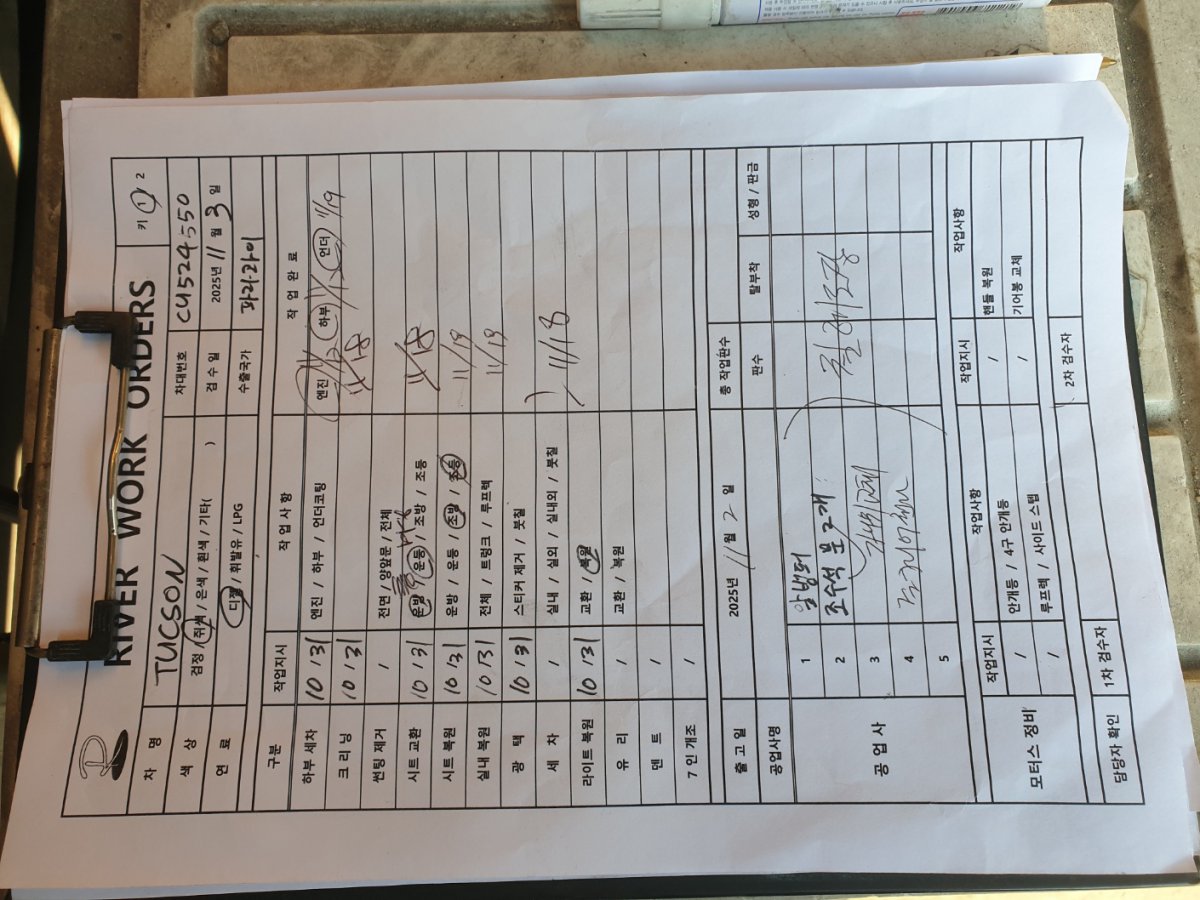 RIVER WORK ORDERS
키 ① / 2
차 명 TUCSON 차대번호 CU524550
색 상 검정 / 쥐색 / 은색 / 흰색 / 기타( ) 검 수 일 2025년 11 월 3 일
연 료 디젤 / 휘발유 / LPG 수출국가 파라과이
구분 작업지시 작 업 사 항 작 업 완 료
하부 세차 10 / 31 엔진 / 하부 / 언더코팅 엔진 하부 언더 11/19
크 리 닝 10 / 31 11/18
썬팅 제거 / 전면 / 양앞문 / 전체
시트 교환 10 / 31 운방 / 운등 / 조방 / 조등 11/18
시트 복원 10 / 31 운방 / 운등 / 조방 / 조등 11/19
실내 복원 10 / 31 전체 / 트렁크 / 루프렉 11/19
광 택 10 / 31 스티커 제거 / 붓칠
세 차 / 실내 / 실외 / 실내외 / 붓칠 11/18
라이트 복원 10 / 31 교환 / 복원
유 리 / 교환 / 복원
덴 트 /
7 인 개조 /
출 고 일 2025년 11 월 2 일 총 작업판수
공업사명 판수 탈부착 성형 / 판금
공 업 사
1 앞범퍼
2 조수석 문 2개
3
4
5
모터스 정비 작업지시 작업사항 작업지시 작업사항
/ 안개등 / 4구 안개등 / 핸들 복원
/ 루프렉 / 사이드 스텝 / 기어봉 교체
담당자 확인 1차 검수자 2차 검수자